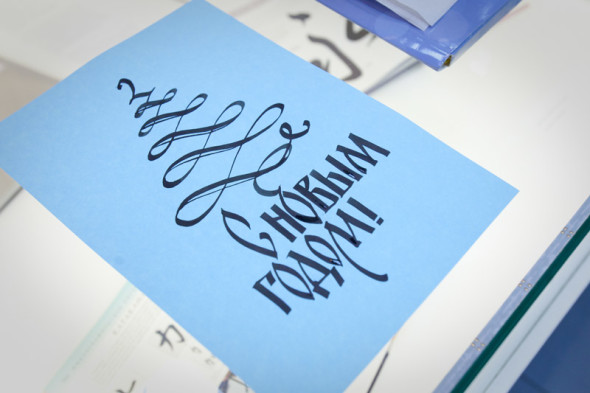 С НОВЫМ
ГОДОМ!
力